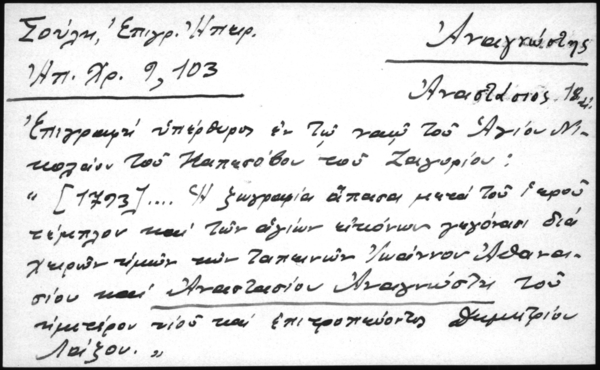 Σούλη, Ἐπιγρ. Ἠπειρ.
Ἀναγνώστης
Ἠπ. Χρ. 9, 103
Ἀναστάσιος 18
Ἐπιγραφή ὑπέρθυρος ἐν τῷ ναῷ τοῦ Ἁγίου Νι-
κολάου τοῦ Καπεσόβου τοῦ Ζαγορίου :
" [1793].... Ἡ ζωγραφία ἅπασα μετά τοῦ ἱεροῦ
τέμπλου καί τῶν ἁγίων εἰκόνων γεγόνασι διά
χειρῶν ἡμῶν τῶν ταπεινῶν Ἰωάννου Ἀθανα-
σίου καί Ἀναστασίου Ἀναγνώστη τοῦ
ἡμετέρου υἱοῦ καί ἐπιτροπεύοντος Δημητρίου
Λαίξου. "